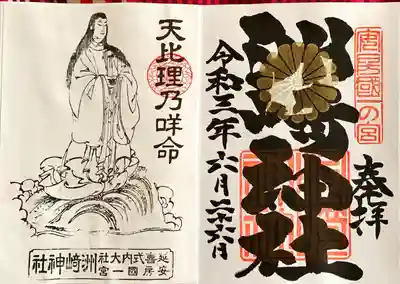 安房國一の宮
奉拝
洲崎神社
令和三年六月二十六日
天比理乃咩命
延喜式内大社
安房國一宮
洲崎神社